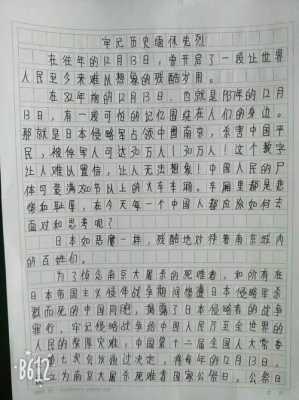 牢记历史缅怀先烈
在往年的12月13日,曾开启了一段让世界
人民至今来难以想象的残酷岁月。
在82年前的12月13日,也就是1937年的12月
13日,有一段可怕的记忆围绕在人们的身边。
那就是日本侵略军占领中国南京,杀害中国平
民,被俘军人可达30万人!30万人!这个数字
让人难以置信,让人无法想象!中国人民的尸
体可装满200节以上的火车车厢。车厢里都是悲
惨和耻辱,在今天每一个中国人都应该如何去
面对和思考呢?
日本如恶魔一样,残酷地对待着南京城内
的百姓们。
为了悼念南京大屠杀的死难者,和所有在
日本帝国主义侵华战争期间惨遭日本侵略军杀
戮而死的中国同胞,揭露了日本侵略者的战争
罪行,牢记侵略战争给中国人民乃至全世界的
人民的深重灾难,中国第十二届全国人大常委
七次会议通过决定,将每年的12月13日,
立为南京大屠杀死难者国家公祭日。公祭日
B612